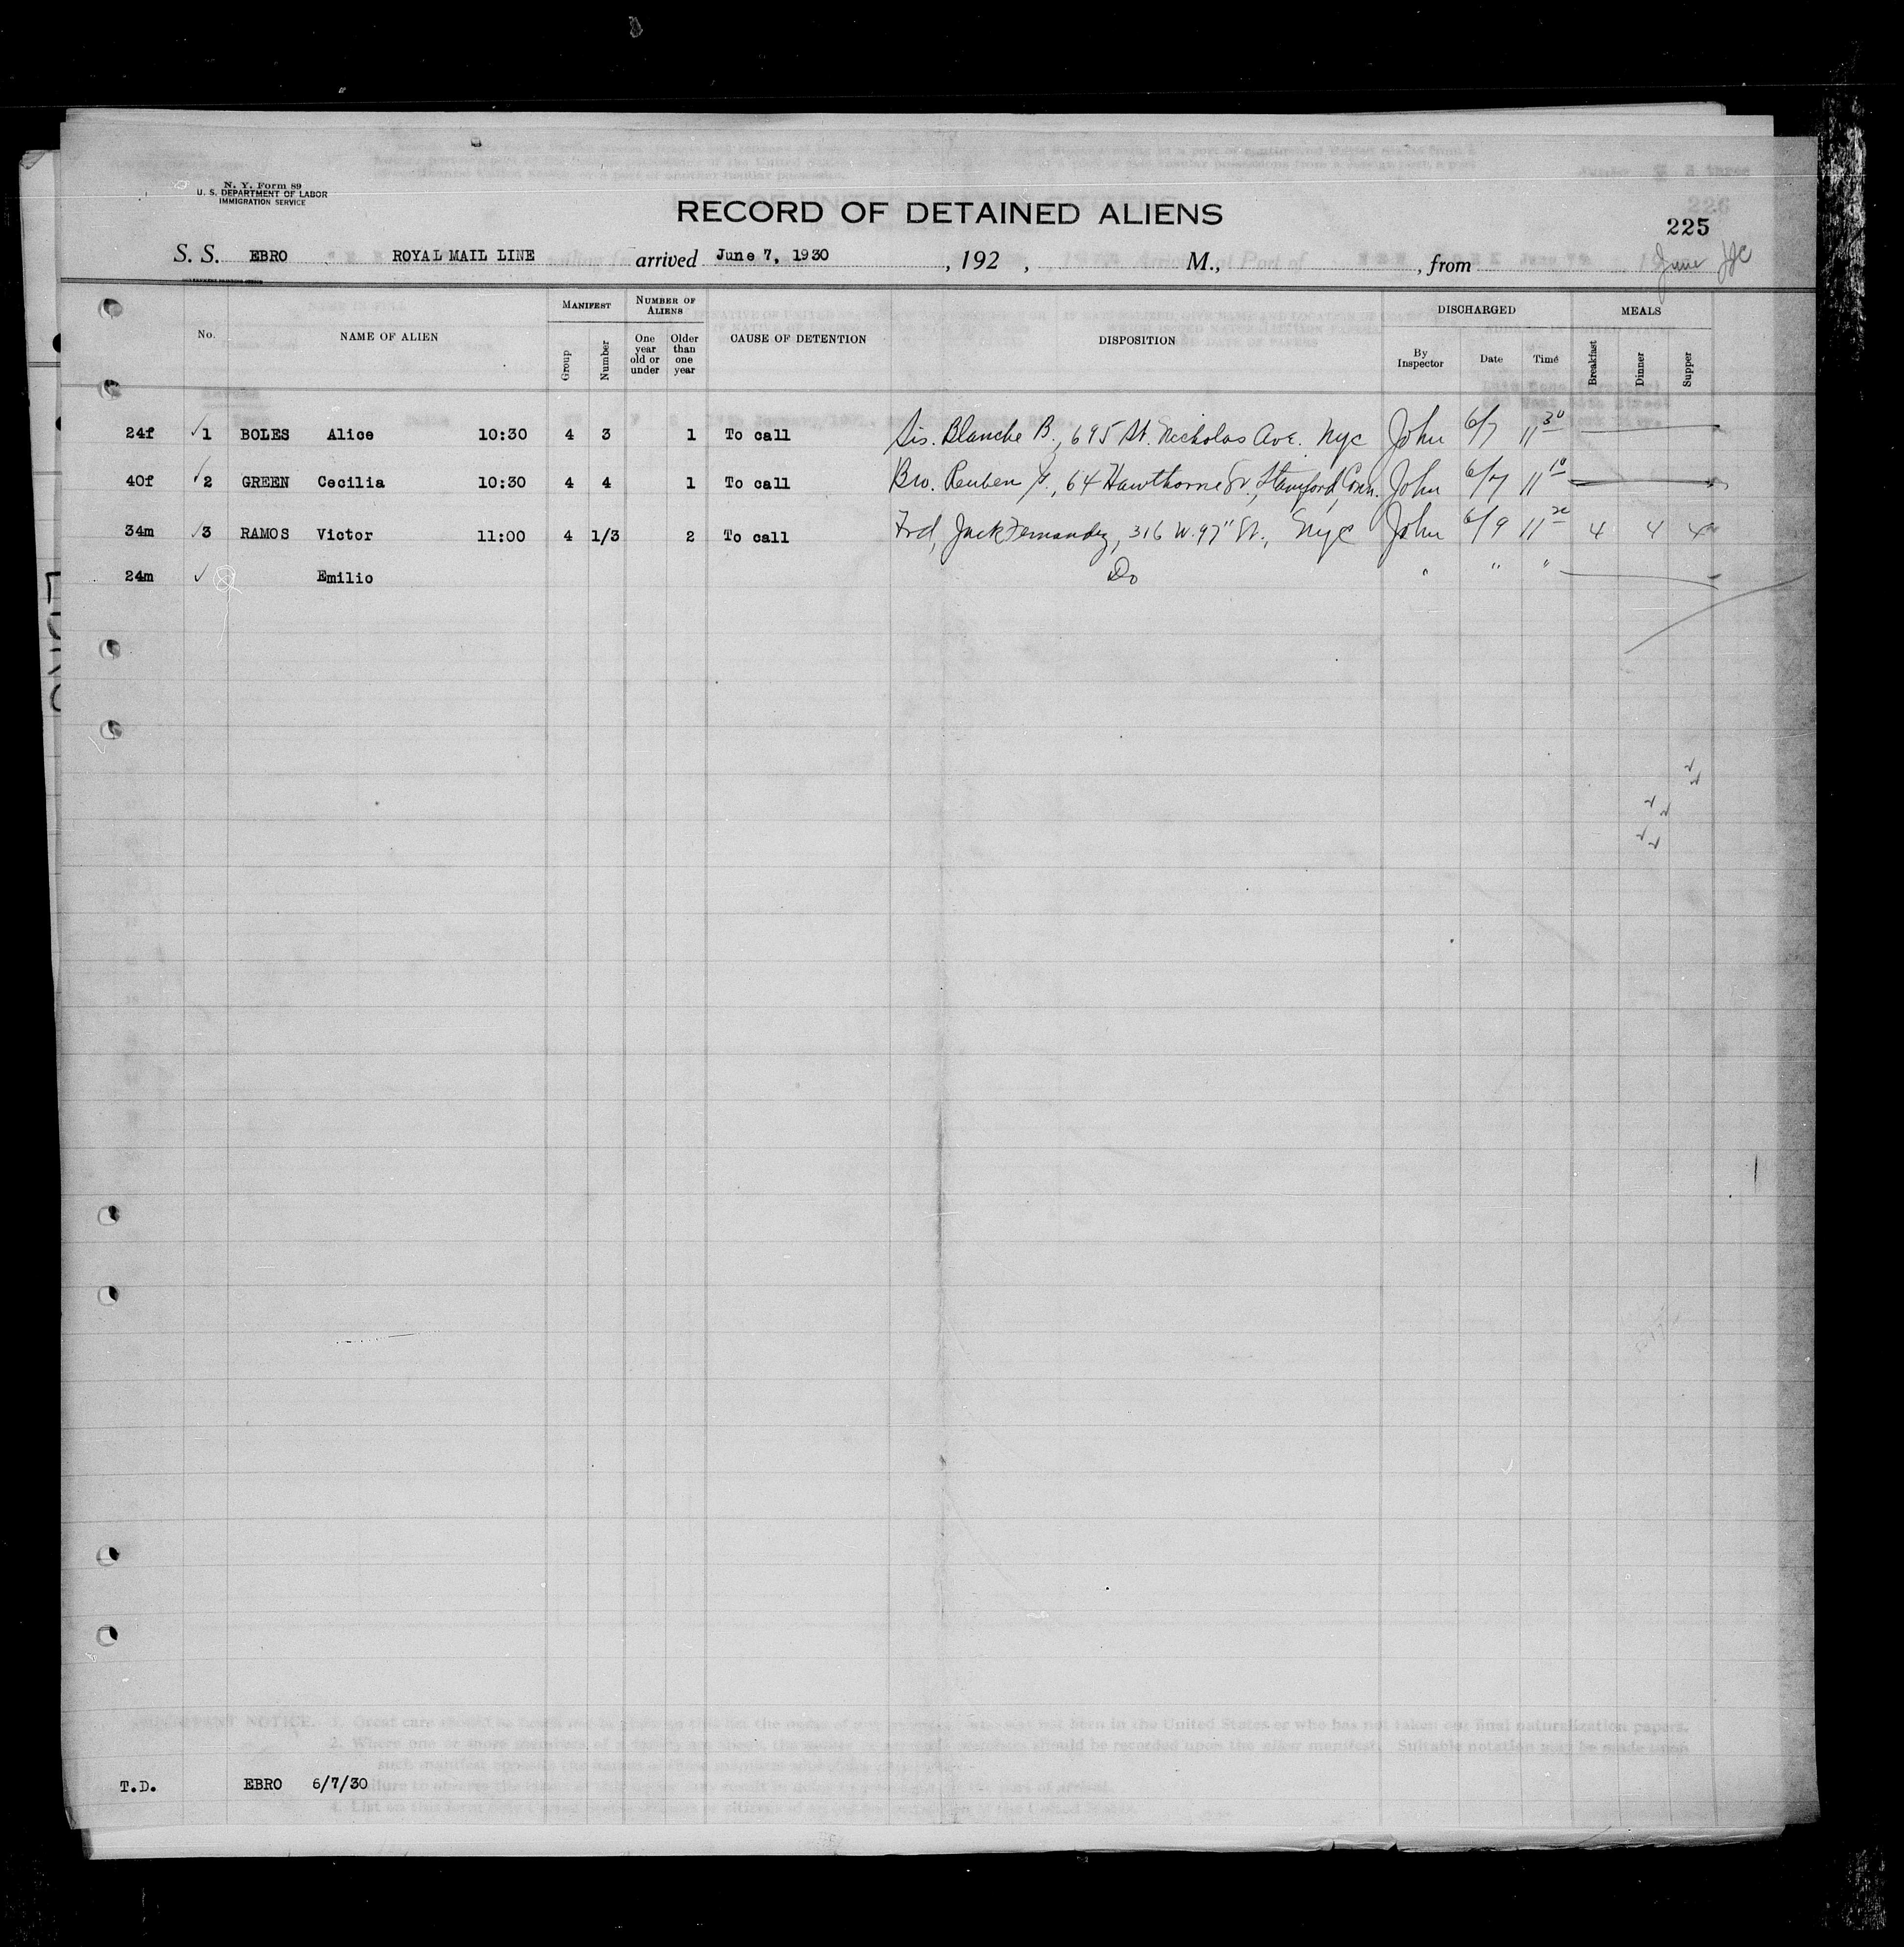 N. Y. Form 89
U. S. DEPARTMENT OF LABOR
IMMIGRATION SERVICE
RECORD OF DETAINED ALIENS
225
S. S. EBRO ROYAL MAIL LINE arrived June 7, 1930 , 192 , M., , from June
No. NAME OF ALIEN MANIFEST Group Number NUMBER OF ALIENS One year old or under Older than one year CAUSE OF DETENTION DISPOSITION DISCHARGED By Inspector Date Time MEALS Breakfast Dinner Supper
24f 1 BOLES Alice 10:30 4 3 1 To call Sis. Blanche B., 695 St. Nicholas Ave. NYC John 6/7 11 30
40f 2 GREEN Cecilia 10:30 4 4 1 To call Bro. Reuben G., 64 Hawthorne St., Stamford, Conn. John 6/7 11 10
34m 3 RAMOS Victor 11:00 4 1/3 2 To call Frd, Jack Fernandez, 316 W. 97" St., NYC John 6/9 11 20 4 4 4
24m Emilio Do " " "
T.D. EBRO 6/7/30